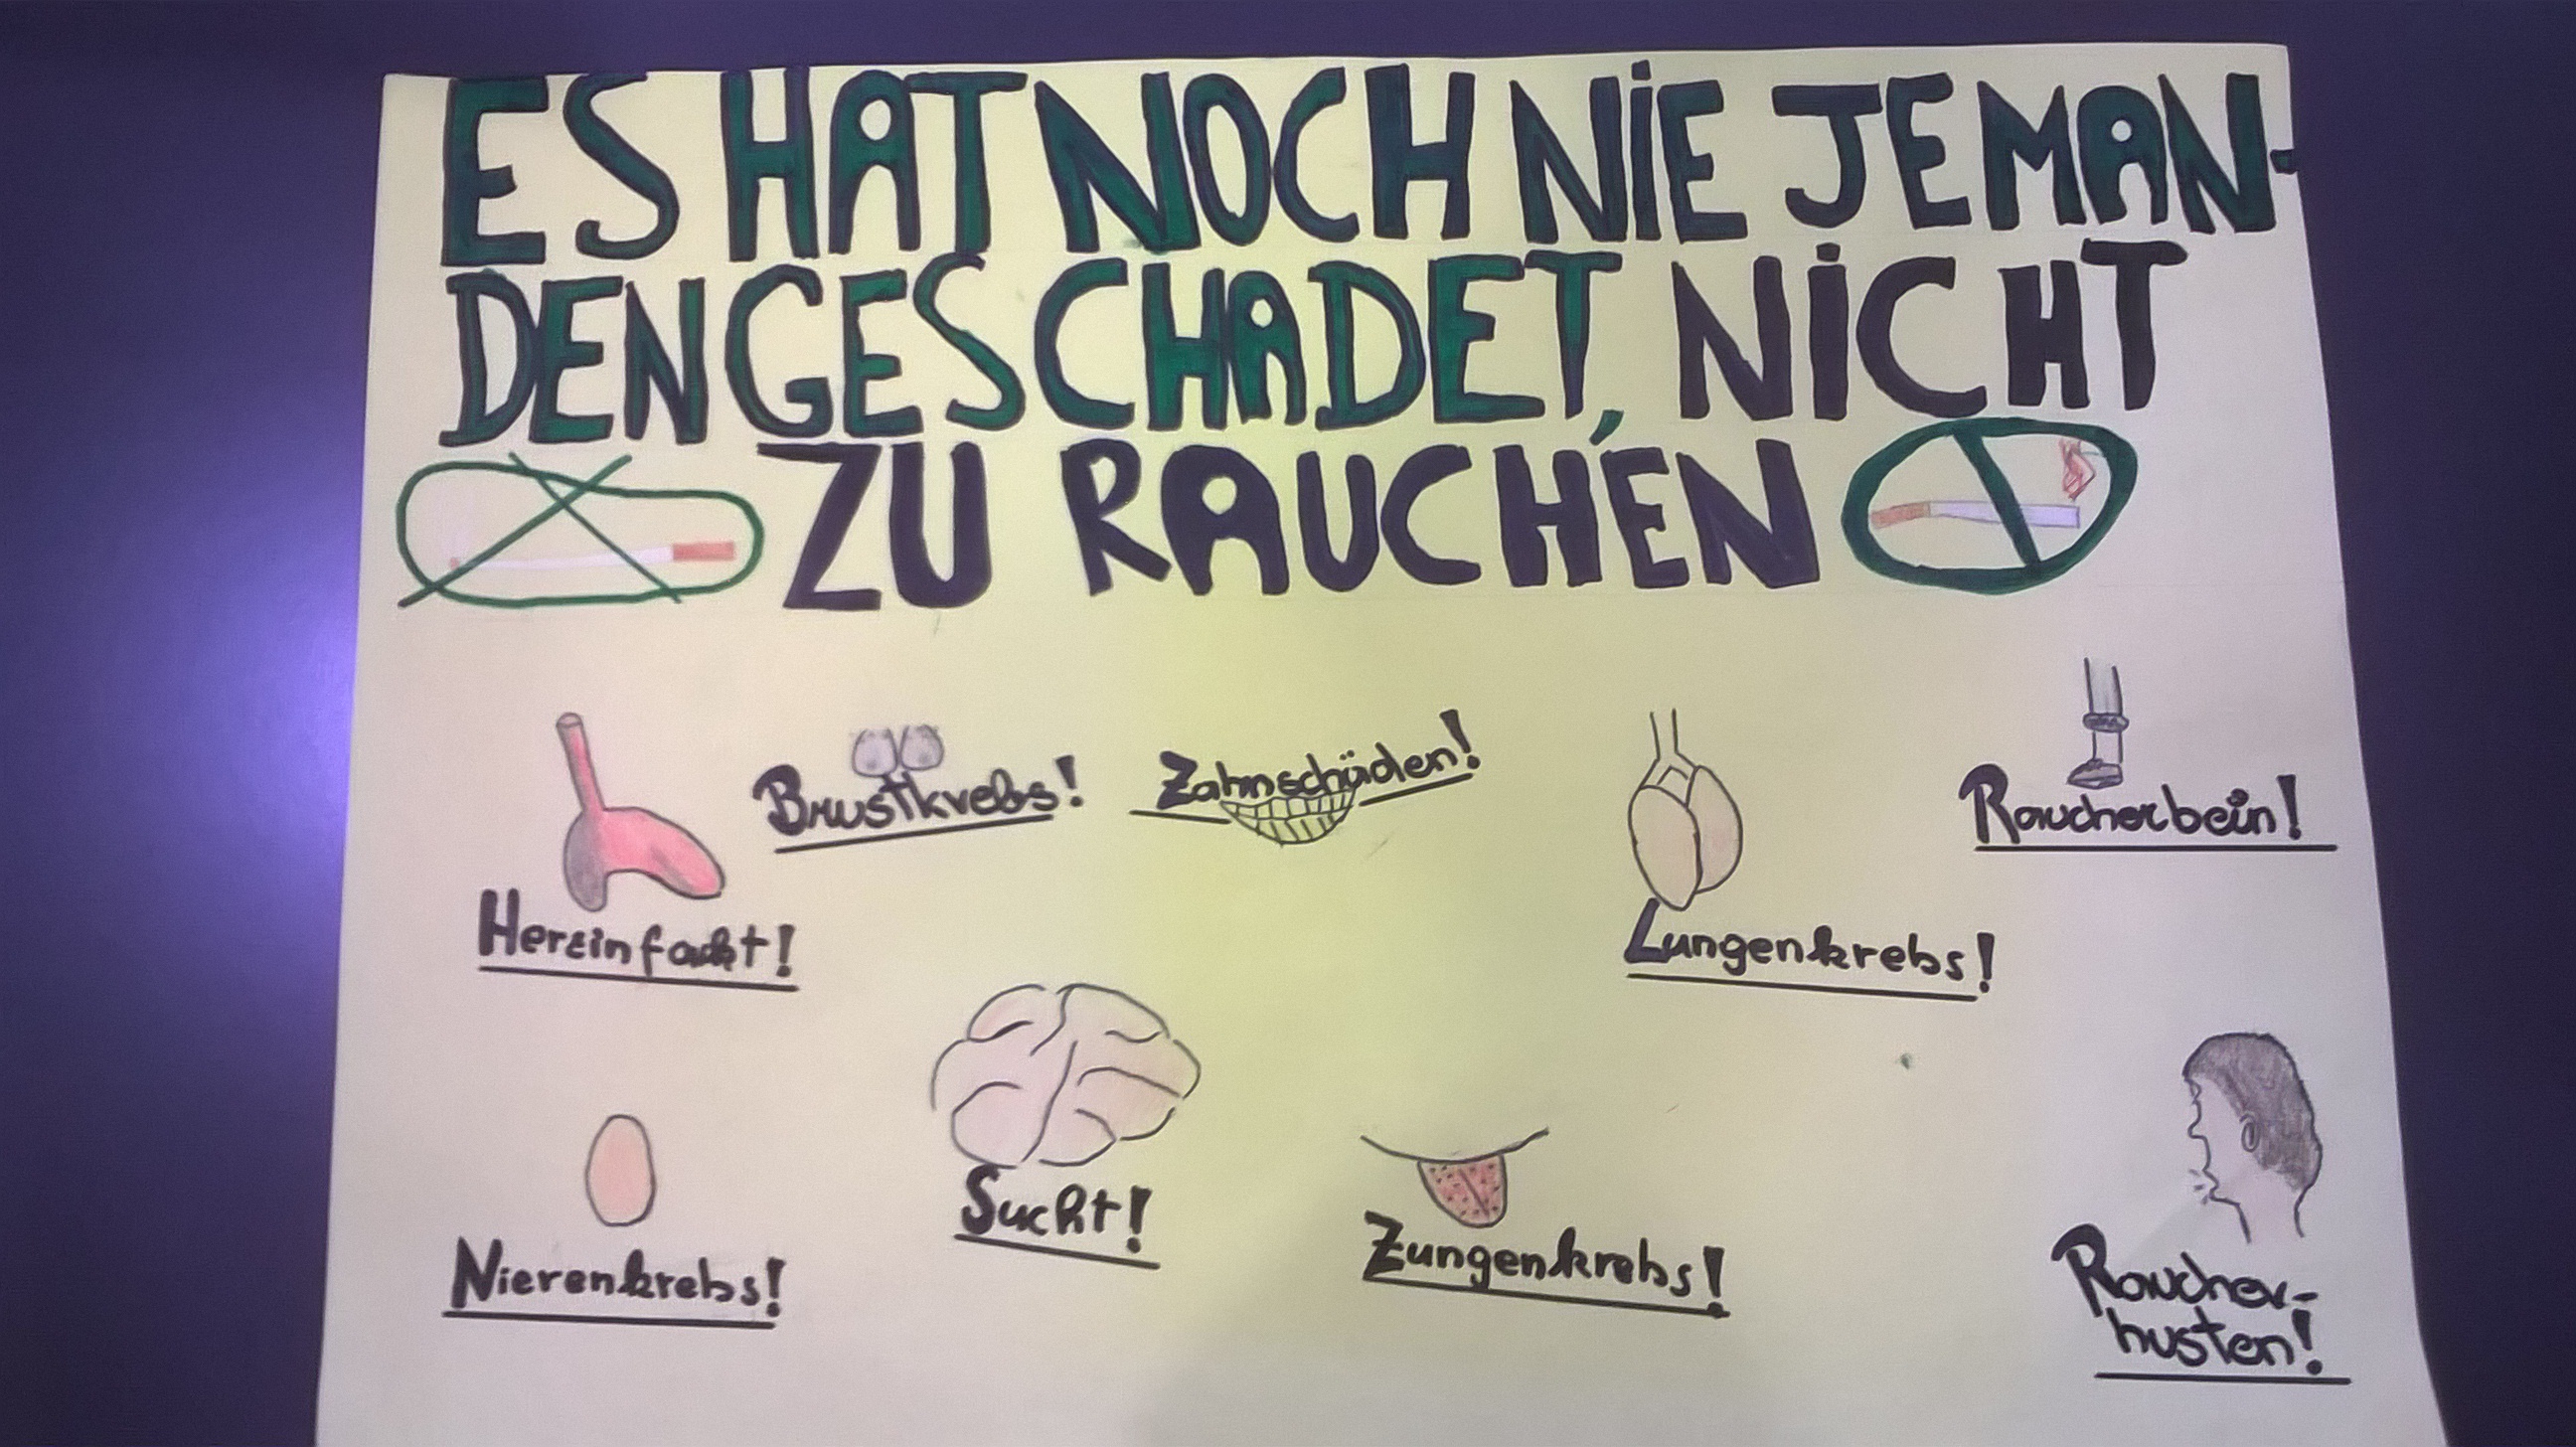 ES HAT NOCH NIE JEMAN-
DEN GESCHADET, NICHT
ZU RAUCHEN
Brustkrebs!
Zahnschäden!
Raucherbein!
Herzinfackt!
Lungenkrebs!
Sucht!
Zungenkrebs!
Nierenkrebs!
Raucher-
husten!